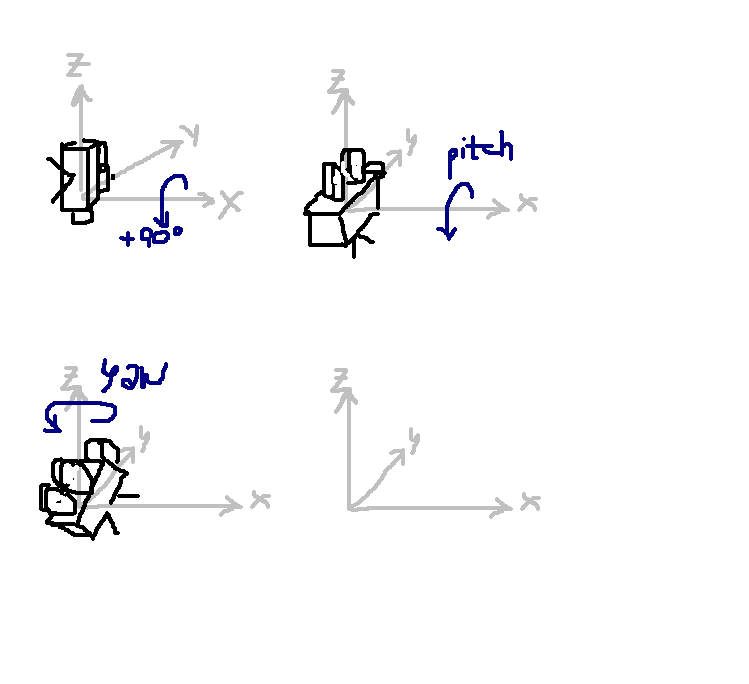 Z
Y
X
+90°
Z
y
pitch
x
Z
yaw
y
x
Z
y
x